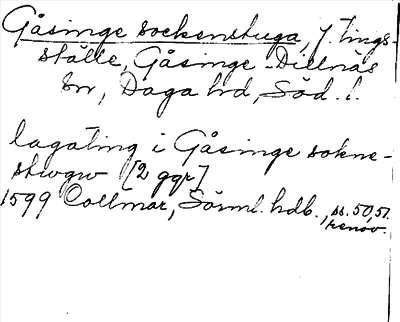 Gåsinge sockenstuga, f. tings-
ställe, Gåsinge-Dillnäs
sn, Daga hd, Söd. l.
lagating i Gåsinge sokne-
stwgw [2 ggr]
1599 Collmar, Sörml. hdb., ss. 50, 51.
renov.